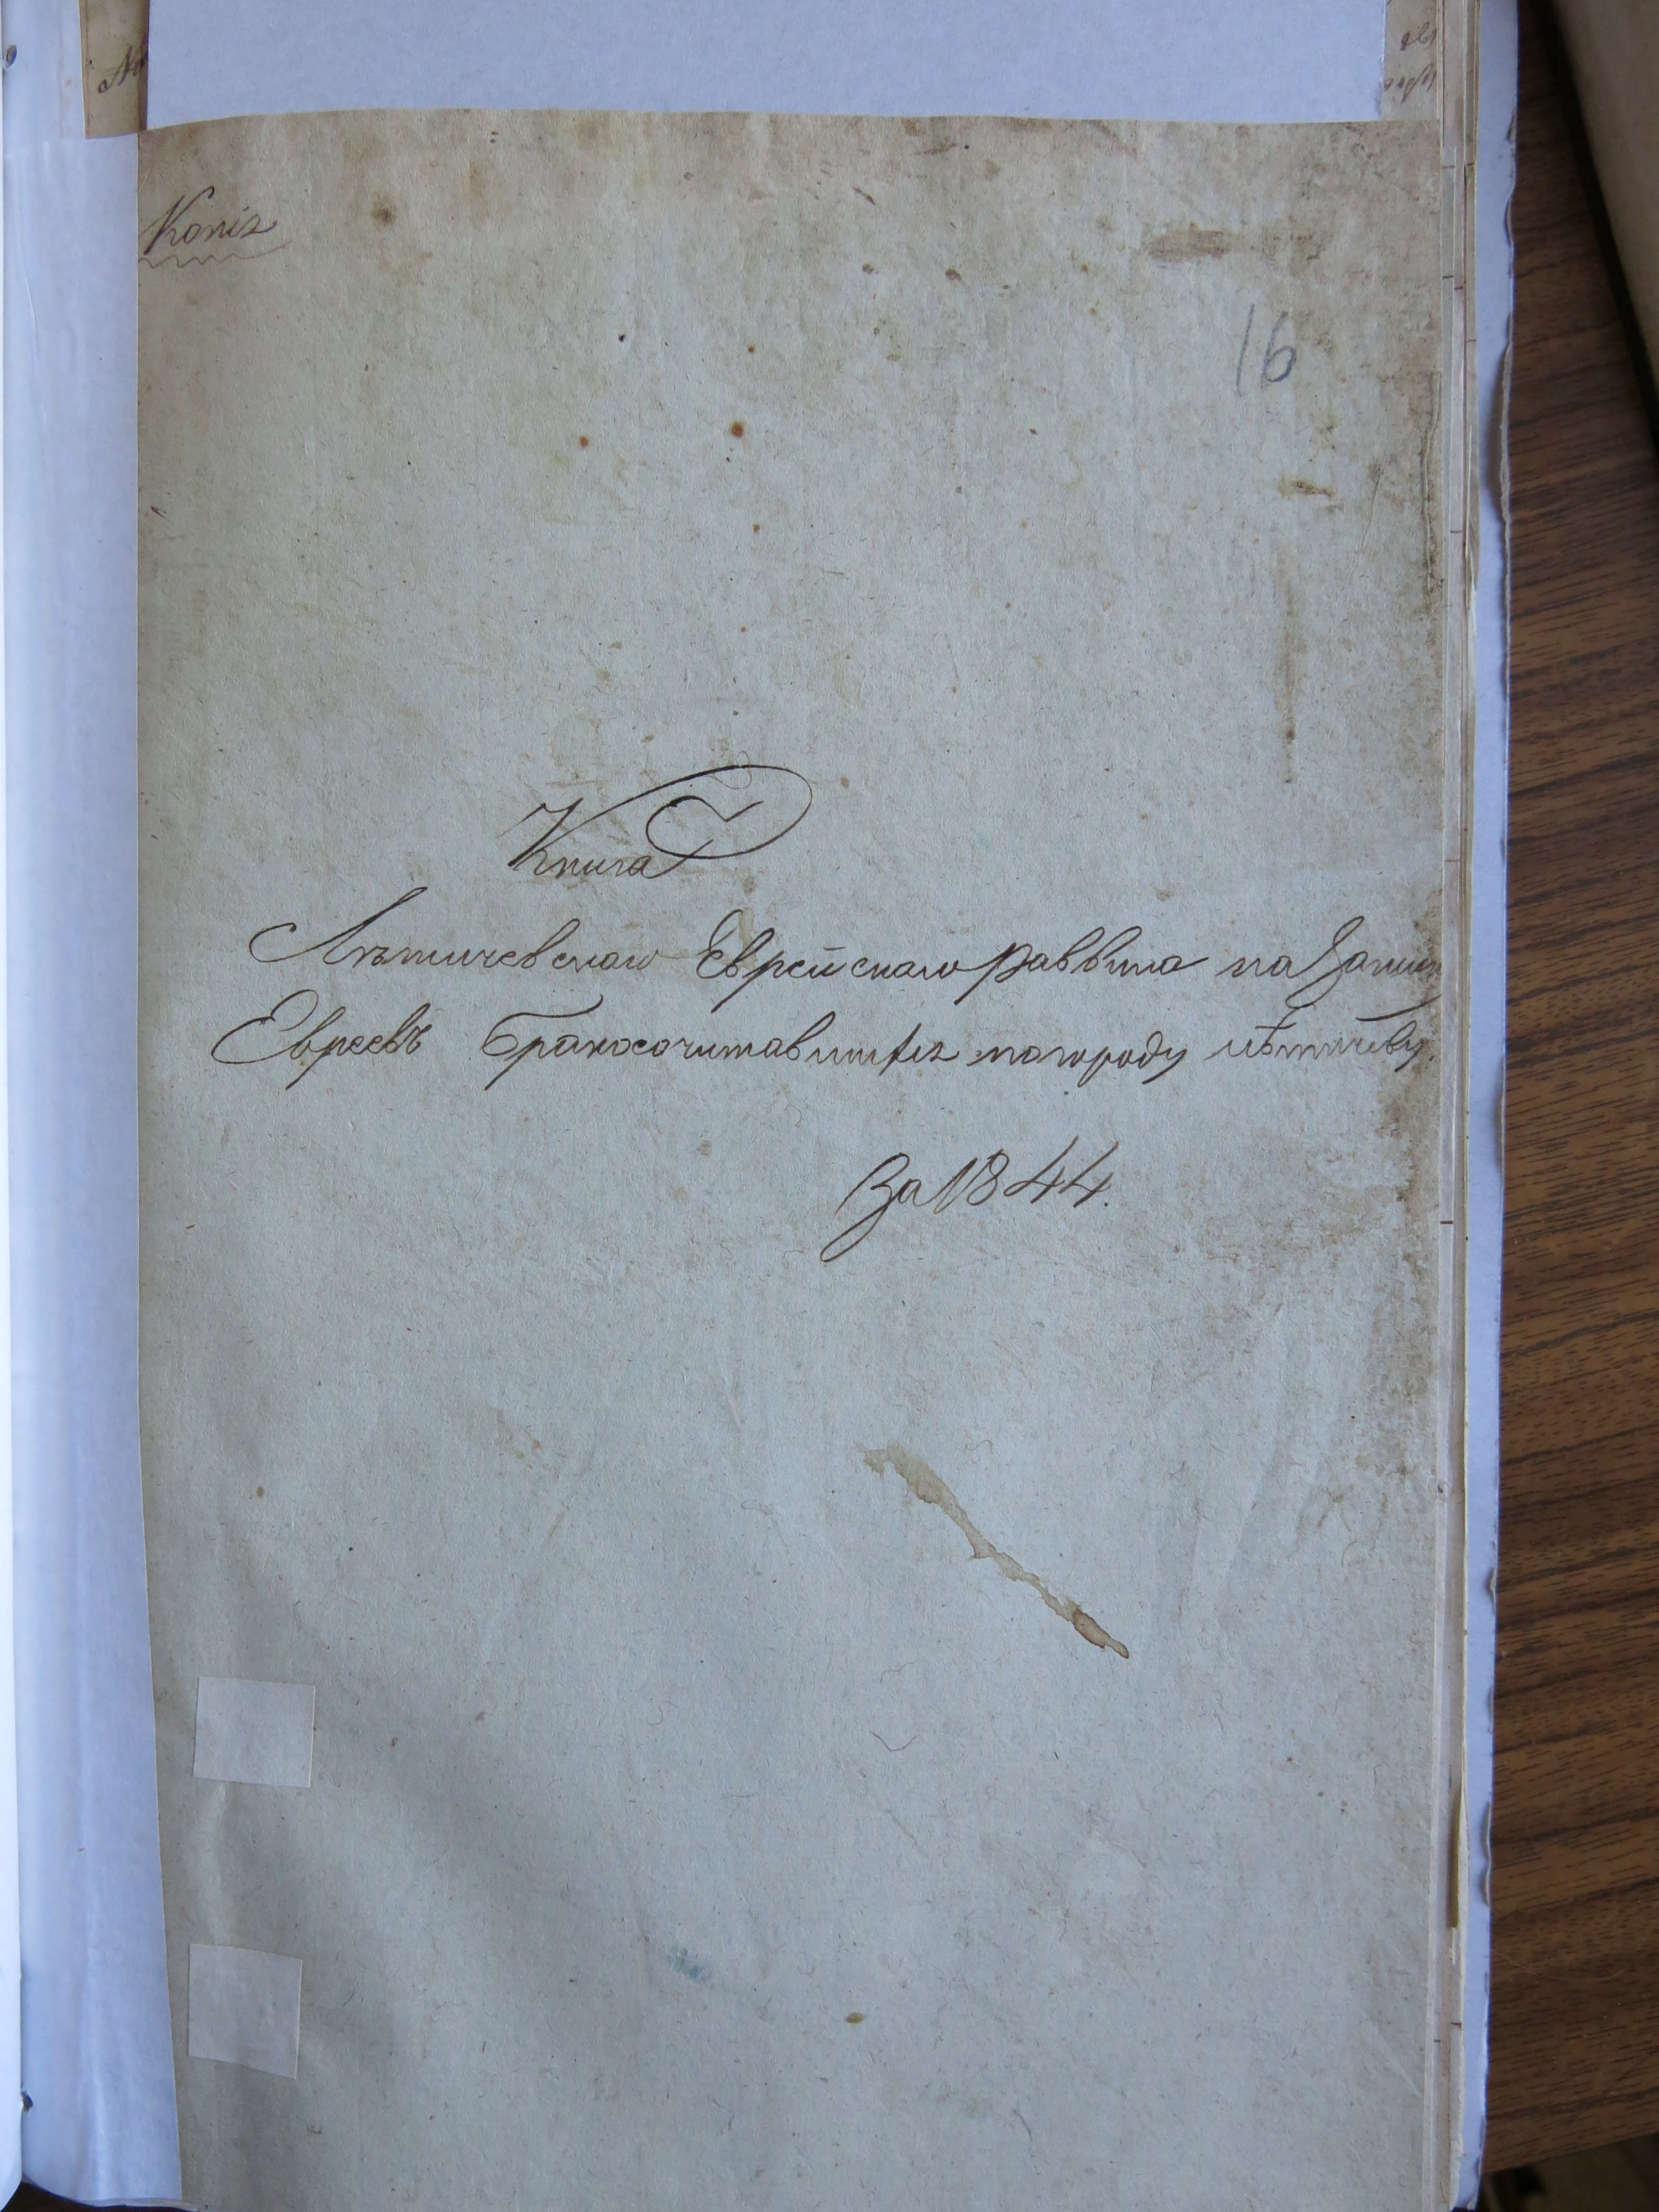 Копія
16
Книга
Лѣтичевскаго Еврейскаго раввина на Запис
Евреевъ бракосочитавшихся по городу лѣтичеву.
За 1844.